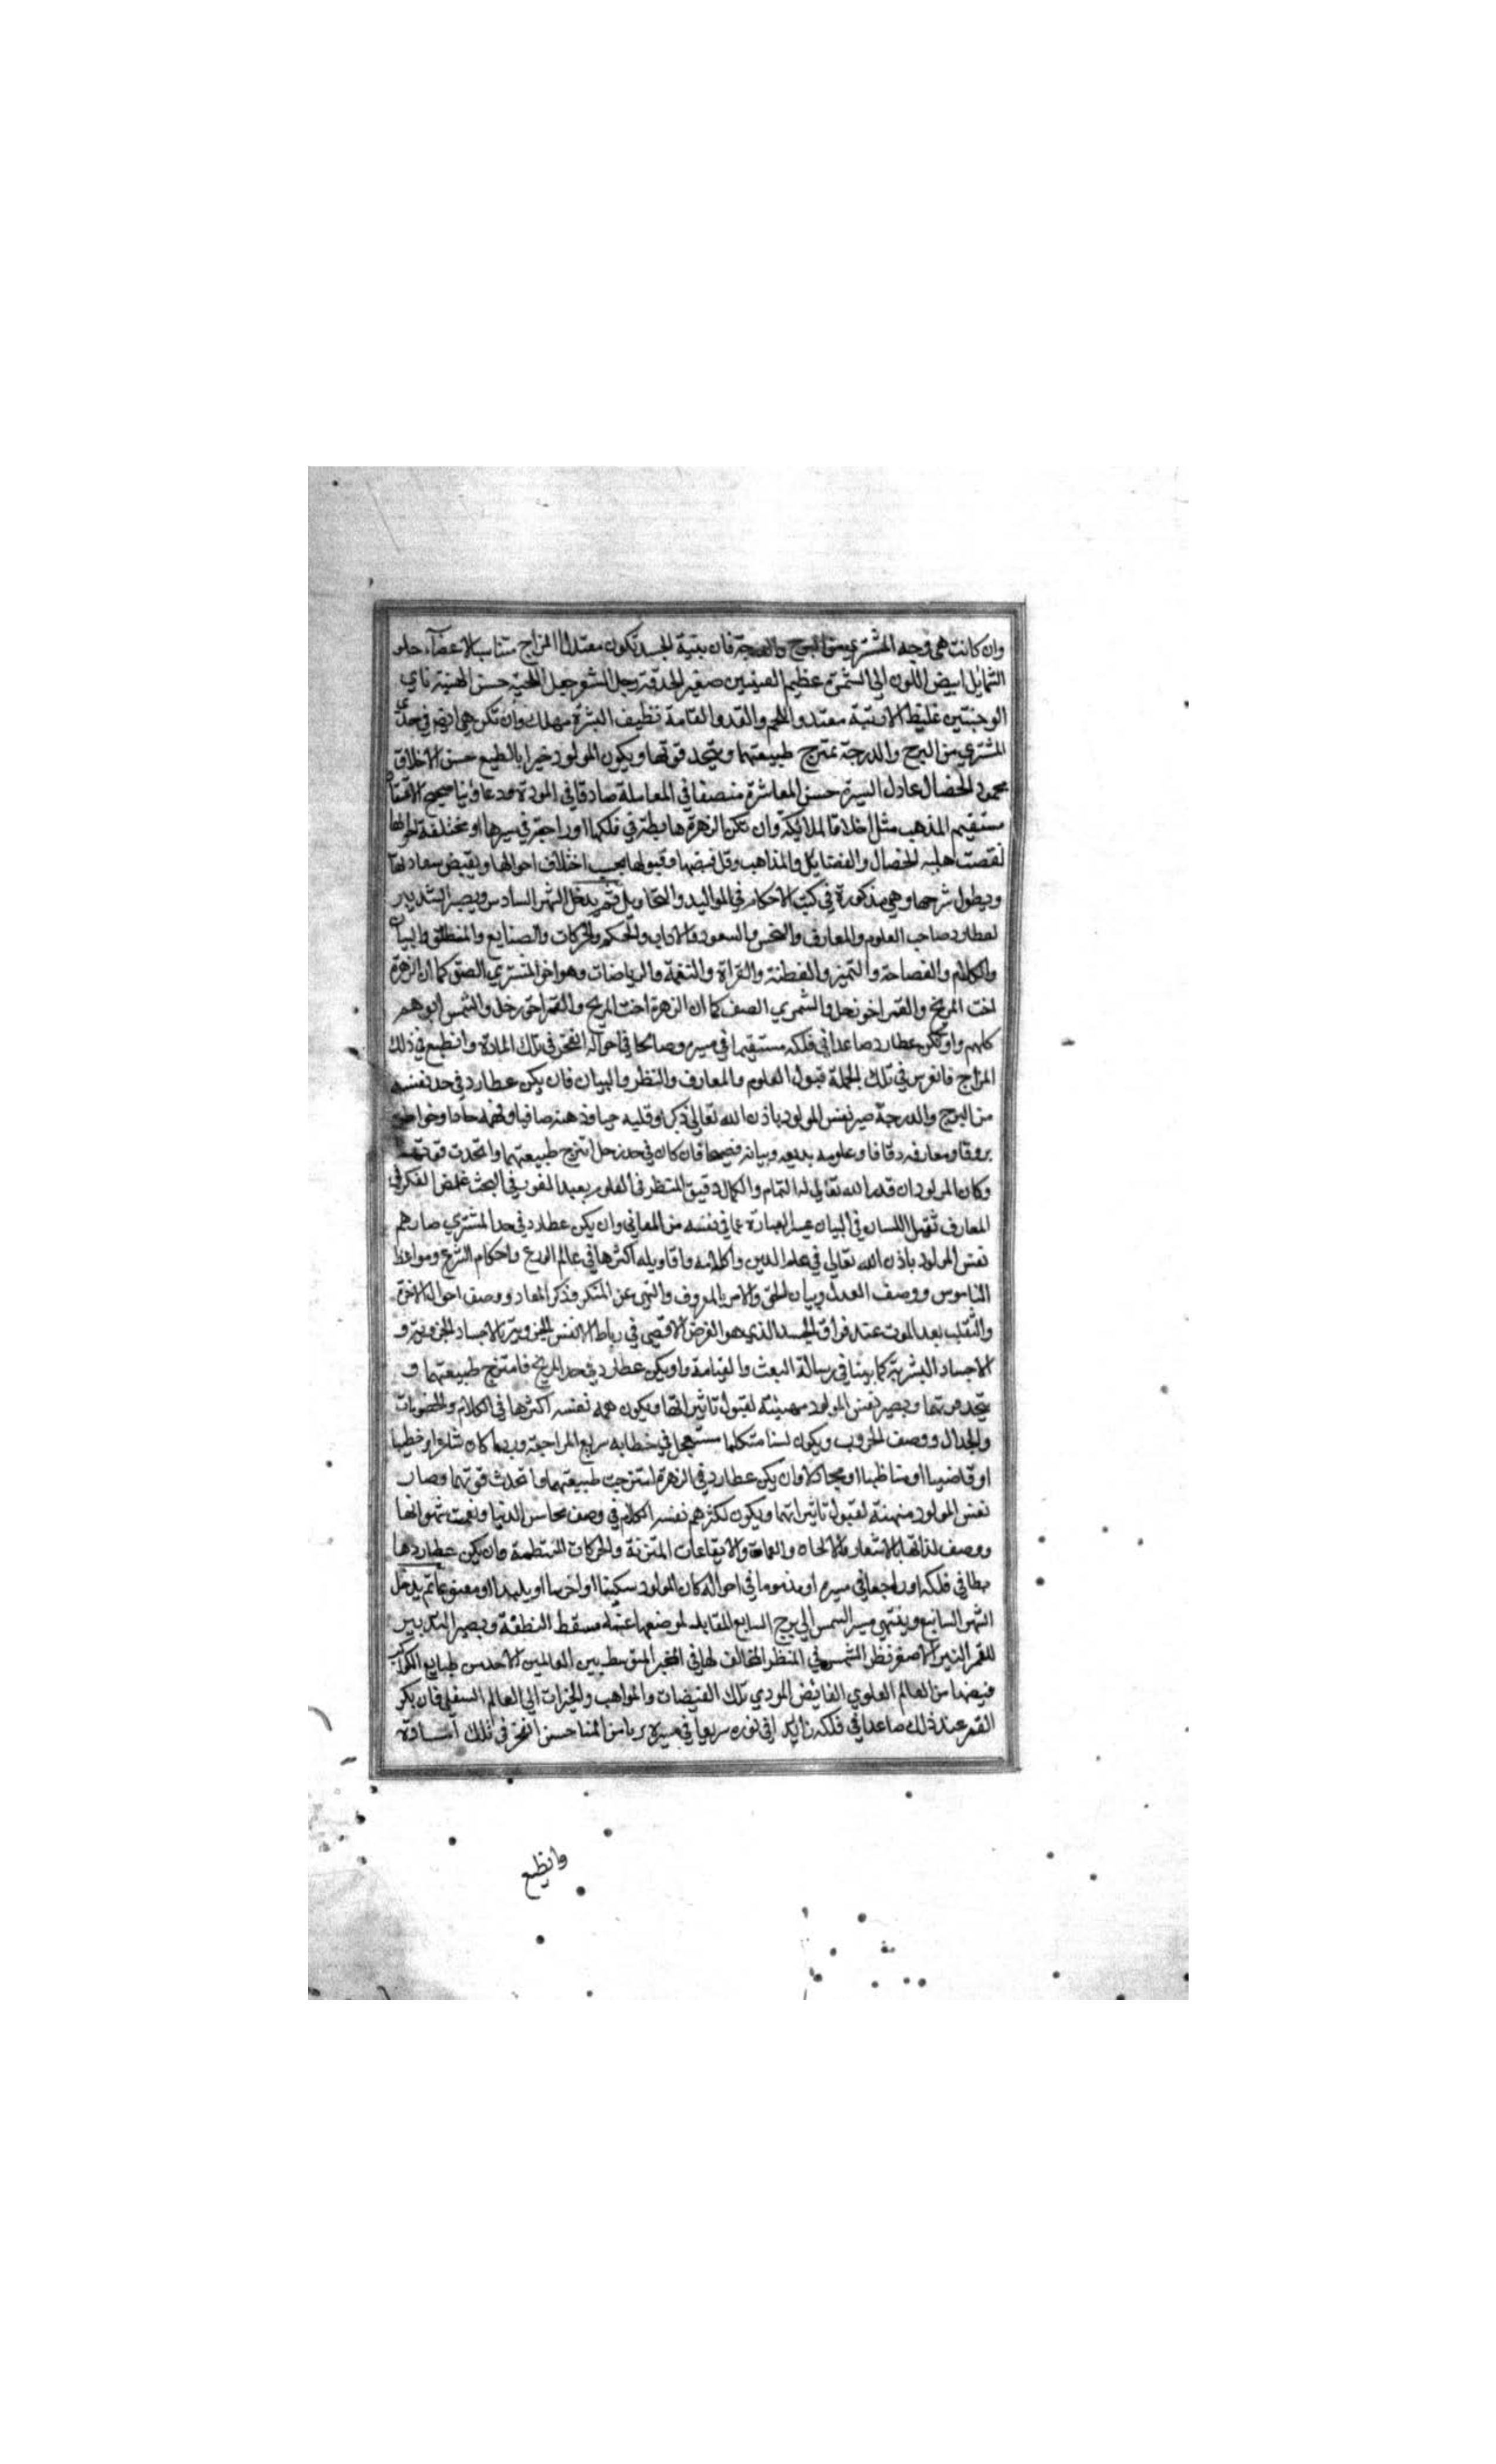 وان كانت هي وجه المشتري من البرج والدرجة فان بنية الجسد تكون معتدل المزاج متناسب الاعضاء حلو
الشمايل ابيض اللون الى الشقرة عظيم العينين صغير الحدقة رجل الشعر جعل اللحية حسن الهنية ناي
الوجنتين غليظ الارنبة معتدل واللحم والقد والقامة نظيف البشرة وان تكن هي ايضا في حدي
المشتري من البرج والدرجة تمتزج طبيعتهما ويتحد قوتها ويكون المولود خيرا بالطبع حسن الاخلاق
محمود الخصال عادل السيرة حسن المعاشرة منصفا في المعاملة صادقا في المودة ودعا وفيا صحيح
مستقيم المذهب مثل اخلاق الملايكة وان تكن الزهرة هابطة في فلكها او راجعة في سيرها او مختلفة احوالها
نقصت هذه الخصال والفضايل والمذاهب وقل فيضها وقبولها بحسب اختلاف احوالها ويقيض سعادتها
ويطول شرحها وهي مذكورة في كتب الاحكام في المواليد والتحاويل ثم يدخل الشهر السادس ويصير التدبير
لعطارد صاحب العلوم والمعارف والنحس والسعود والاداب والحكم والحركات والصنايع والمنطق والبيان
والكلام والفصاحة والتميز والفطنة والقراة والنغمة والرياضات وهو اخو المشتري الصق كما ان الزهرة
اخت المريخ والقمر اخو زحل والشمري الصف كما ان الزهرة اخت المريخ والقمر اخو زحل والشمس ابوهم
كلهم واو تكن عطارد صاعدا في فلكه مستقيما في سيره وصالحا في احواله انغرز في تلك المادة وانطبع في ذلك
المزاج فانغرس في تلك الجملة قبول العلوم والمعارف والنظر والبيان فان يكن عطارد في حد نفسه
من البرج والدرجة صير نفس المولود باذن الله تعالى ذكرا وقلبه حيا وذهنه صافيا وفهمه حادا وخواطره
بروقا ومعارفه دقاقا وعلومه بديعه وبيانه فصيحا فان كان في حد زحل امتزج طبيعتهما واتحدت قوتهما
وكان المولود ان قدر الله تعالى له التمام والكمال دقيق النظر في العلوم بعيد الغور في البحث غامض الفكر في
المعارف ثقيل اللسان في البيان عسر العبارة عما في نفسه من المعاني وان يكن عطارد في حد المشتري صار هم
نفس المولود باذن الله تعالى في علم الدين وكلامه واقاويله اكثرها في عالم الورع واحكام الشرع ومواعظ
الناموس ووصف العدل وبيان الحق والامر بالمعروف والنهي عن المنكر وذكر المعاد ووصف احوال الاخرة
والتقلب بعد الموت عند فراق الجسد الذي هو الغرض الاقصى في رباط الانفس الجزوية بالاجساد الجزوية و
الاجساد البشرية كما بينا في رسالة البعث والقيامة واو يكن عطارد في حد المريخ فامتزج طبيعتهما و
يتحد قوتهما ويصير نفس المولود مهيئة لقبول تاثيراتها ويكون همة نفسه اكثرها في الكلام والخصومات
والجدال ووصف الحروب ويكون لسنا متكلما في خطابه سريع المراجعة وربما كان شاعرا وخطيبا
او قاضيا او مناظبا او مجاكلا وان يكن عطارد في الزهرة امتزجت طبيعتهما واتحدث قوتهما وصار
نفس المولود منهمئة لقبول تاثيراتهما ويكون اكثر هم نفسه الكلام في وصف محاسن الدنيا ونعت شهواتها
ووصف لذاتها بالاشعار والالحان والايقاعات المتزنة والحركات المنتظمة وان يكن عطارد ها
بطا في فلكه او راجعا في سيره او مذموما في احواله كان المولود سكيتا او اخرسا او بليدا او معتوها ثم يدخل
الشهر السابع وينتهي مسير الشمس الى برج السابع المقابل لموضعها عند مسقط النطفة ويصير التدبير
للقمر النير الاصغر نظر الشمس في المنظر المخالف لها في المخبر المتوسط بين العالمين الاخذ من طبايع الكواكب
فيضها من العالم العلوي الفايض المودي تلك الفيضات والمواهب والخيرات الى العالم السفلي فان يكن
القمر عند ذلك صاعدا في فلكه زايدا في نوره سريعا في سيره بريا من المناحس انغرز في تلك المادة
وانطبع